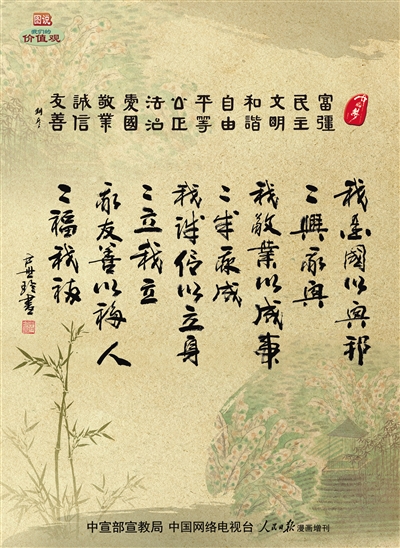 图说
我们的
价值观
中国梦
富彊
民主
文明
和諧
自由
平等
公正
法治
愛國
敬業
誠信
友善
我爱國以興邦
〻興我興
我敬業以成事
〻成我成
我誠信以立身
〻立我立
我友善以福人
〻福我福
中宣部宣教局 中国网络电视台 人民日报 漫画增刊